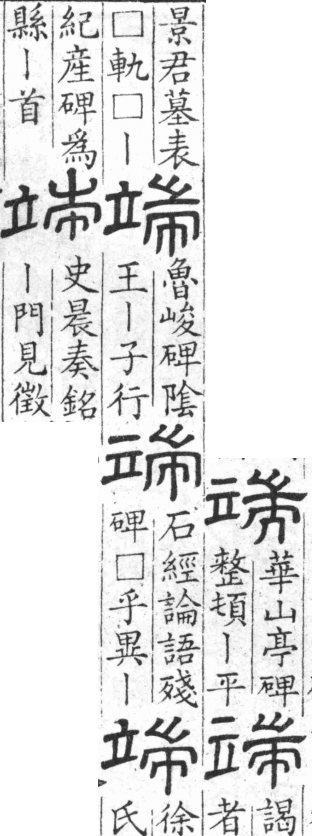 端
華山亭碑
整頓丨平
端
謁
者
景君墓表
□軌□丨
端
魯峻碑陰
王丨子行
端
石經論語殘
碑□乎異丨
端
徐
氏
紀産碑為
縣丨首
端
史晨奏銘
丨門見徵